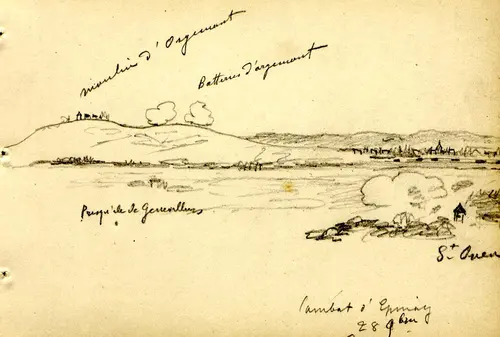 moulin d'Orgemont
Batteries d'orgemont
Presqu'ile de Genevilliers
St Ouen
Combat d'Epinay
28 9bre